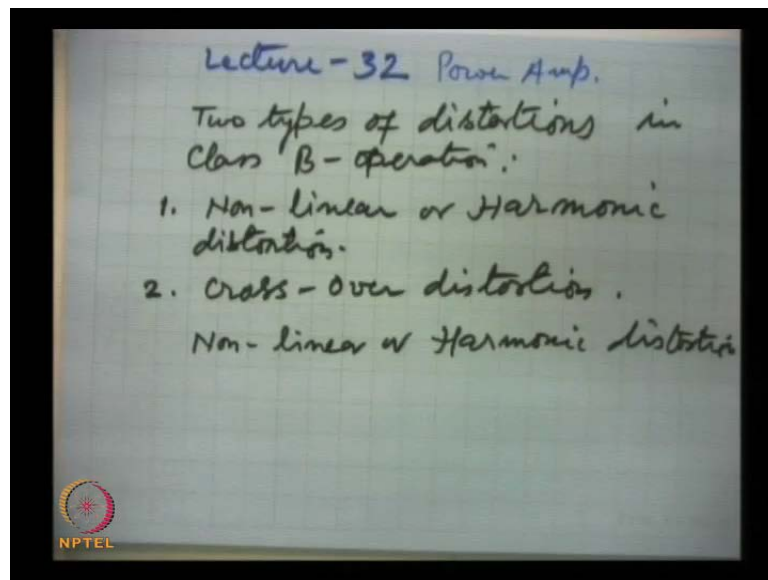 Lecture - 32 Power Amp.
Two types of distortions in
Class B - operation:
1. Non-linear or Harmonic
distortion.
2. Cross-Over distortion.
Non-linear or Harmonic distortion
NPTEL